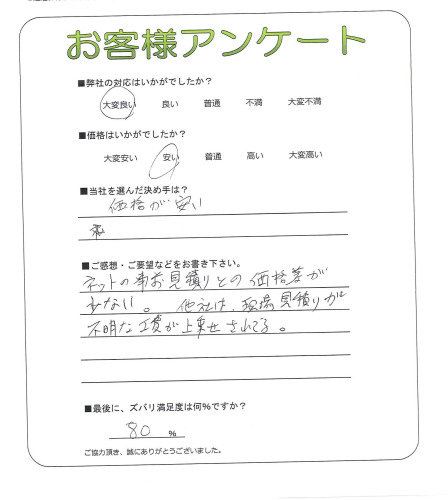 お客様アンケート
■弊社の対応はいかがでしたか？
大変良い 良い 普通 不満 大変不満
■価格はいかがでしたか？
大変安い 安い 普通 高い 大変高い
■当社を選んだ決め手は？
価格が安い
■ご感想・ご要望などをお書き下さい。
ネットの事お見積りとの価格差が
少ない。 他社は、現場見積りが
不明な工費が上乗せされてる。
■最後に、ズバリ満足度は何%ですか？
80 %
ご協力頂き、誠にありがとうございました。